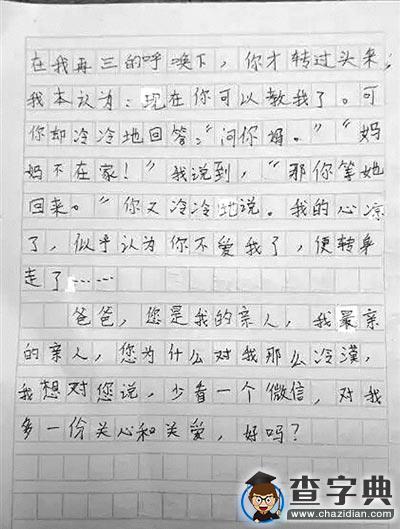 在我再三的呼唤下，你才转过头来，
我本认为：现在你可以教我了。可
你却冷冷地回答：“问你妈。”“妈
妈不在家！”我说到，“那你等她
回来。”你又冷冷地说。我的心凉
了，似乎认为你不爱我了，便转身
走了……
爸爸，您是我的亲人，我最亲
的亲人，您为什么对我那么冷漠，
我想对您说，少看一个微信，对我
多一份关心和关爱，好吗？
查字典
www.chazidian.com